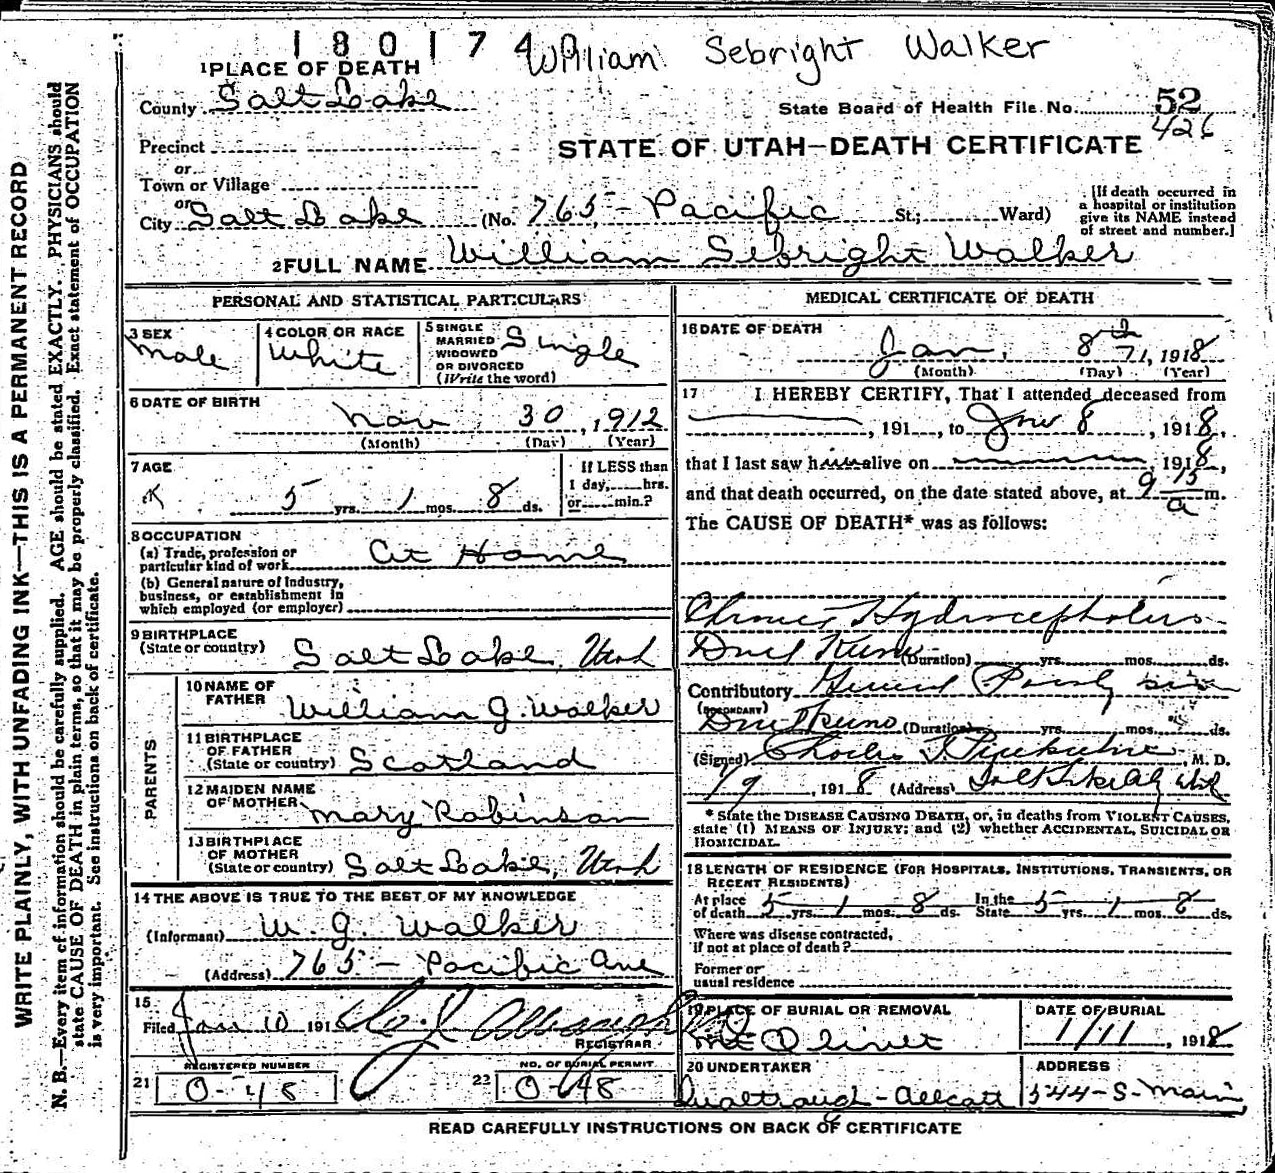 180174 William Sebright Walker
1 PLACE OF DEATH
County Salt Lake
State Board of Health File No. 52
426
Precinct
or
STATE OF UTAH—DEATH CERTIFICATE
Town or Village
or
City Salt Lake (No. 765 - Pacific St; Ward)
[If death occurred in
a hospital or institution
give its NAME instead
of street and number.]
2 FULL NAME William Sebright Walker
PERSONAL AND STATISTICAL PARTICULARS
3 SEX
Male
4 COLOR OR RACE
White
5 SINGLE
MARRIED
WIDOWED
OR DIVORCED
(Write the word)
Single
6 DATE OF BIRTH
Nov 30, 1912
(Month) (Day) (Year)
7 AGE
5 yrs. 1 mos. 8 ds.
If LESS than
1 day, hrs.
or min.?
8 OCCUPATION
(a) Trade, profession or
particular kind of work At Home
(b) General nature of Industry,
business, or establishment in
which employed (or employer)
9 BIRTHPLACE
(State or country) Salt Lake, Utah
PARENTS
10 NAME OF
FATHER William G. Walker
11 BIRTHPLACE
OF FATHER
(State or country) Scotland
12 MAIDEN NAME
OF MOTHER Mary Robinson
13 BIRTHPLACE
OF MOTHER
(State or country) Salt Lake, Utah
14 THE ABOVE IS TRUE TO THE BEST OF MY KNOWLEDGE
(Informant) W. G. Walker
(Address) 765 - Pacific Ave
15
Filed Jan 10 191
REGISTRAR
REGISTERED NUMBER
21 0-48
NO. OF BURIAL PERMIT
22 0-48
MEDICAL CERTIFICATE OF DEATH
16 DATE OF DEATH
Jan. 8th, 1918
(Month) (Day) (Year)
17 I HEREBY CERTIFY, That I attended deceased from
, 191 , to Jan 8, 1918,
that I last saw him alive on , 1918,
and that death occurred, on the date stated above, at 9 15 a m.
The CAUSE OF DEATH* was as follows:
Chronic Hydrocephalus
Don't Know (Duration) yrs. mos. ds.
Contributory General
(SECONDARY)
Don't Know (Duration) yrs. mos. ds.
(Signed) Charles , M. D.
1/9, 1918 (Address) Salt Lake City Utah
* State the DISEASE CAUSING DEATH, or, in deaths from VIOLENT CAUSES,
state (1) MEANS OF INJURY; and (2) whether ACCIDENTAL, SUICIDAL OR
HOMICIDAL.
18 LENGTH OF RESIDENCE (FOR HOSPITALS, INSTITUTIONS, TRANSIENTS, OR
RECENT RESIDENTS)
At place
of death 5 yrs. 1 mos. 8 ds. In the
State 5 yrs. 1 mos. 8 ds.
Where was disease contracted,
if not at place of death?
Former or
usual residence
19 PLACE OF BURIAL OR REMOVAL
Mt Olivet
DATE OF BURIAL
1/11, 1918
20 UNDERTAKER
ADDRESS
544 - S - Main
READ CAREFULLY INSTRUCTIONS ON BACK OF CERTIFICATE
WRITE PLAINLY, WITH UNFADING INK—THIS IS A PERMANENT RECORD
N. B.—Every item of information should be carefully supplied. AGE should be stated EXACTLY. PHYSICIANS should
state CAUSE OF DEATH in plain terms, so that it may be properly classified. Exact statement of OCCUPATION
is very important. See instructions on back of certificate.